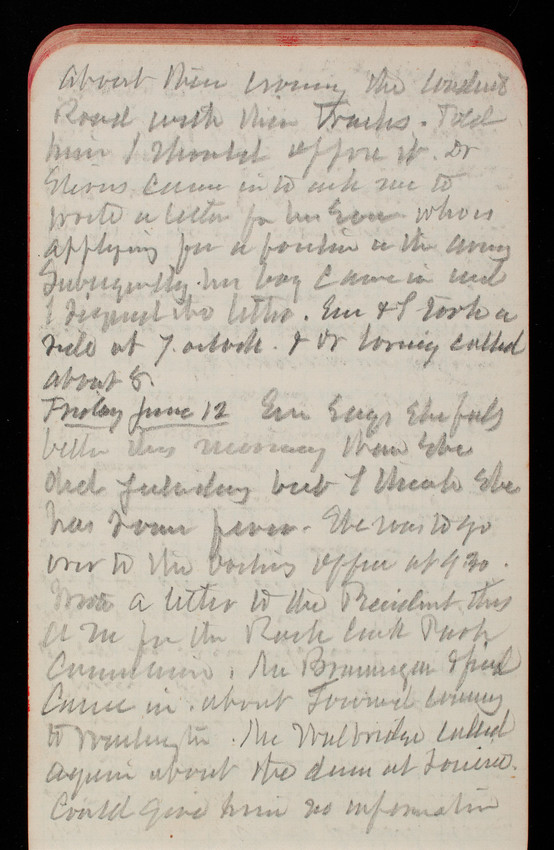 about their crossing the Conduit
Road with their Tracks. Told
him I should oppose it. Dr
came in to ask me to
write a letter for his Son who is
applying for a position in the army
Subsequently his boy came in and
I the letter. Em & I took a
ride at 7 oclock. & Dr Loring called
about 8.
Friday June 12 Em Says She feels
better this morning than She
did yesterday but I think She
has Some fever. She was to go
over to the office at 9 30.
Wrote a letter to the President this
A M for the Rock Creek Park
Commission. Mr Brannigan & friend
Came in about coming
to Washington. Mr Walbridge called
again about the dam at
Could give him no information